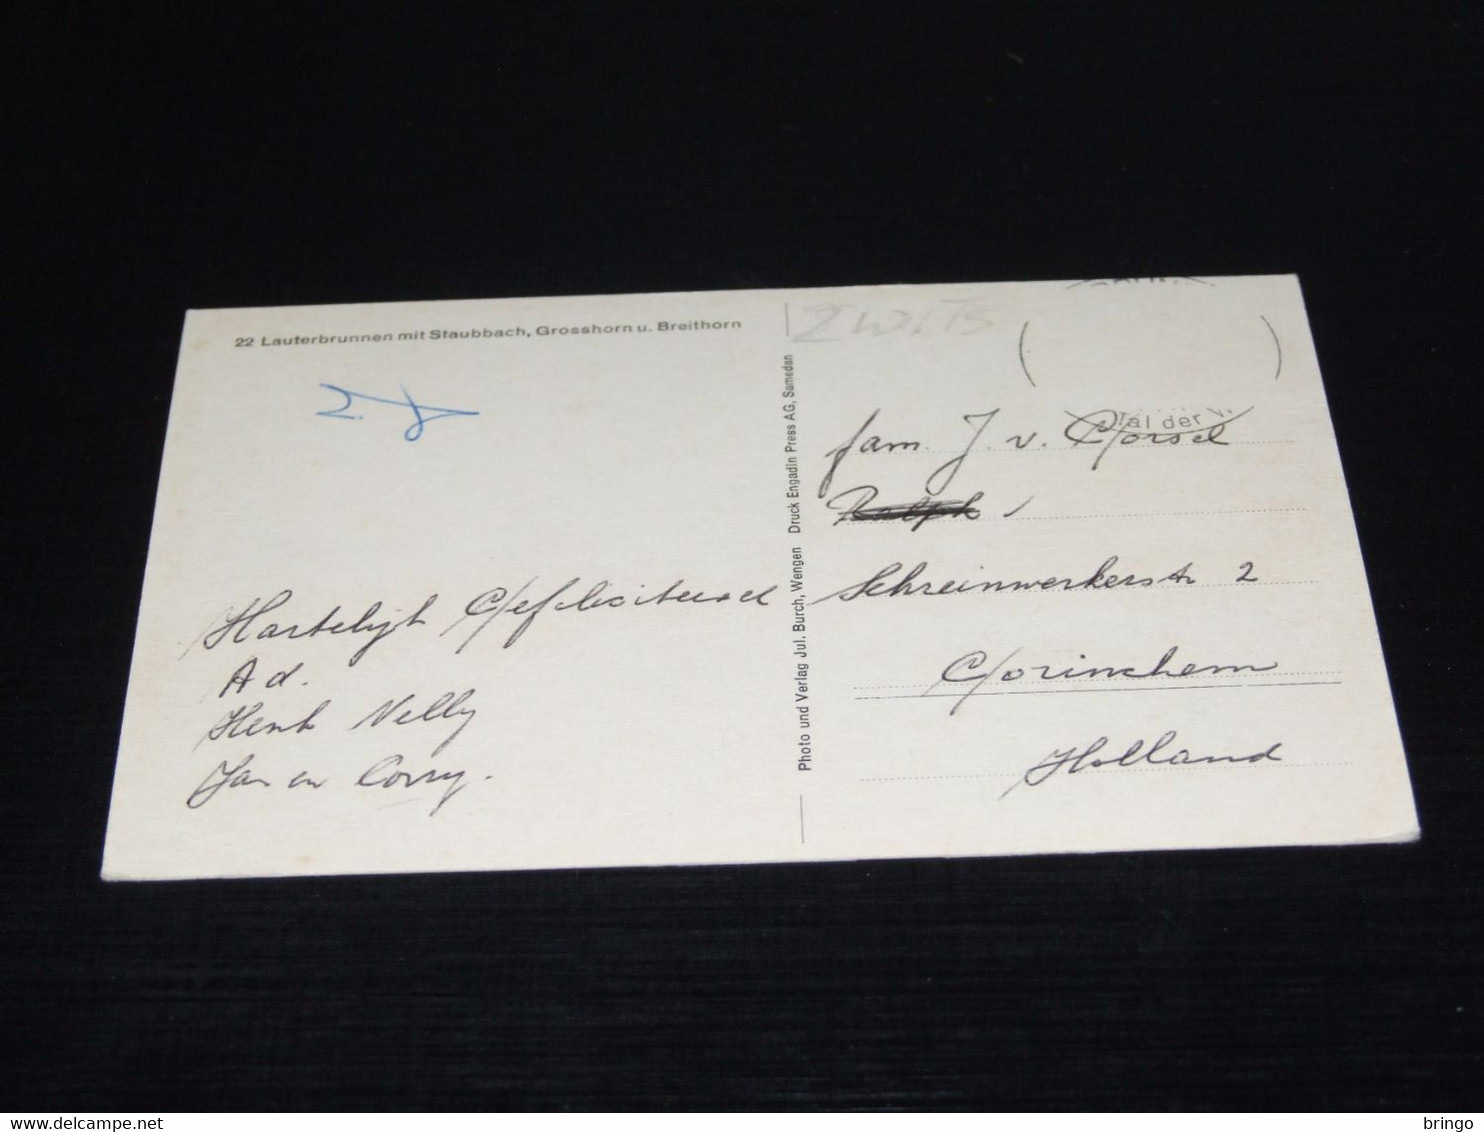 22 Lauterbrunnen mit Staubbach, Grosshorn u. Breithorn
ZWITS
Tal der
Hartelijk Gefeliciteerd
Ad.
Henk Nelly
Jan en Corry.
Photo und Verlag Jul. Burch, Wengen Druck Engadin Press AG, Samedan
fam. J. v. Gorsel
Schreinwerkerstr 2
Gorinchem
Holland
delcampe.net
bringo